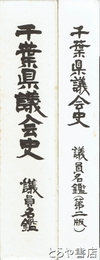 千葉県議会史
議員名鑑(第二版)
千葉県議会史
議員名鑑
とらや書店